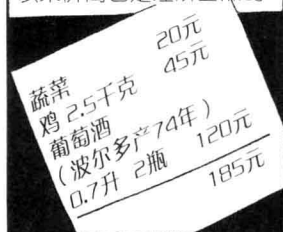 蔬菜 20元
鸡 2.5千克 45元
葡萄酒
（波尔多产74年）
0.7升 2瓶 120元
185元